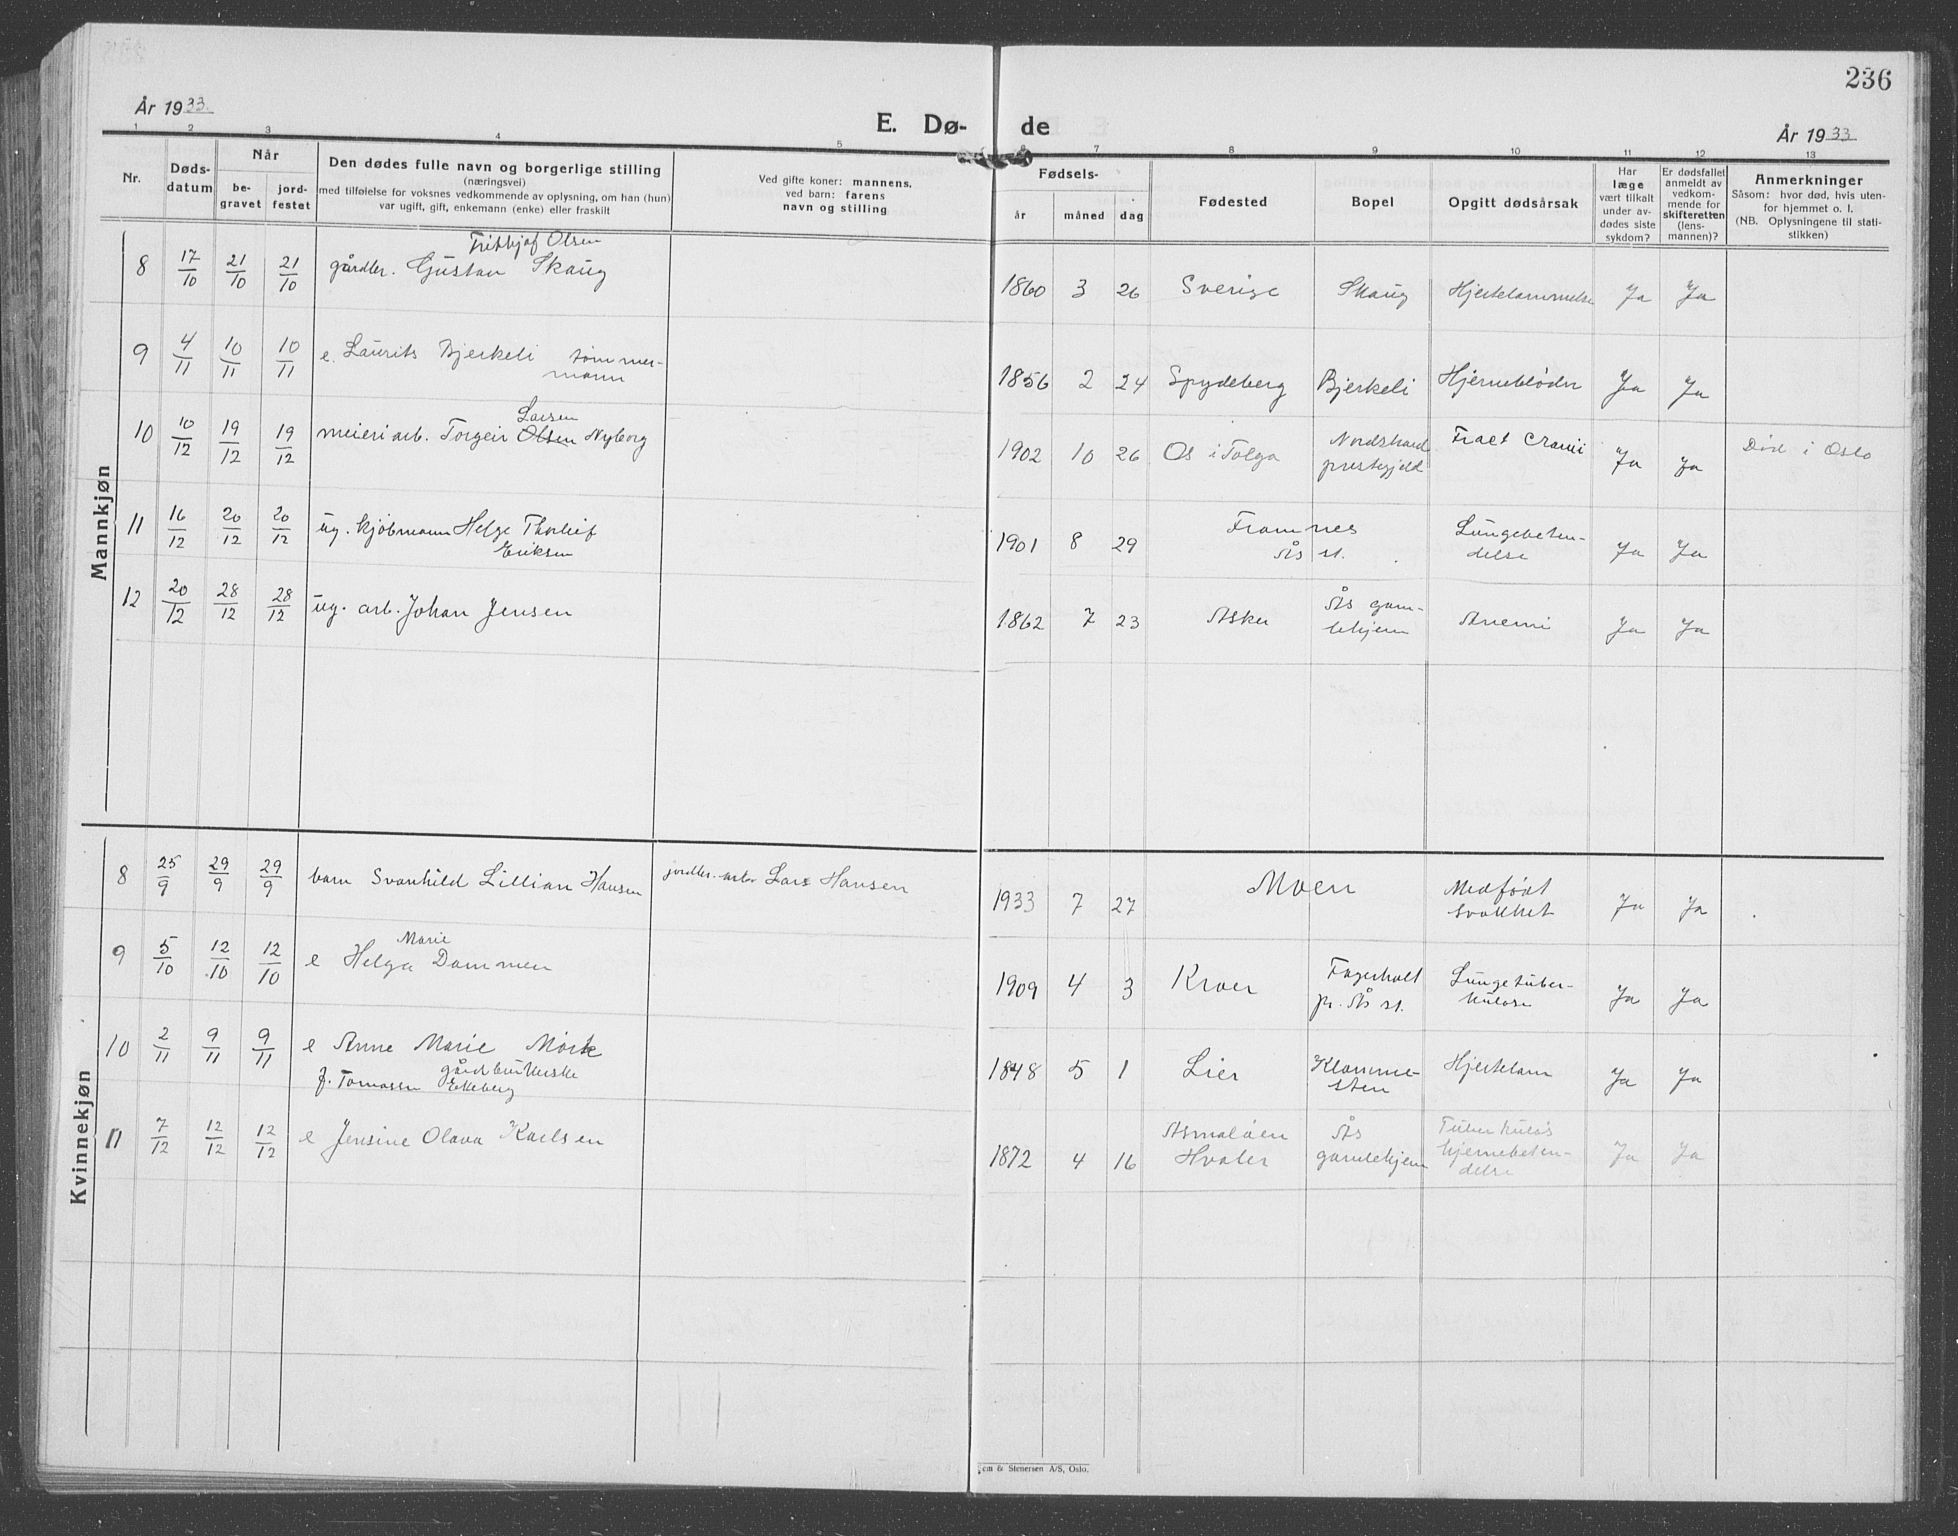 236
År 1933.
E. Dø-
de
År 1933
1 2 3 4 5 6 7 8 9 10 11 12 13
Nr.
Døds-
datum
Når
be-
gravet
jord-
festet
Den dødes fulle navn og borgerlige stilling
(næringsvei)
med tilføielse for voksnes vedkommende av oplysning, om han (hun)
var ugift, gift, enkemann (enke) eller fraskilt
Ved gifte koner: mannens,
ved barn: farens
navn og stilling
Fødsels-
år
måned
dag
Fødested
Bopel
Opgitt dødsårsak
Har
læge
vært tilkalt
under av-
dødes siste
sykdom?
Er dødsfallet
anmeldt av
vedkom-
mende for
skifteretten
(lens-
mannen)?
Anmerkninger
Såsom: hvor død, hvis uten-
for hjemmet o. l.
(NB. Oplysningene til stati-
stikken)
Mannkjøn
Fritthjof Olsen
8 17/10 21/10 21/10 gårdbr. Gustav Skaug 1860 3 26 Sverige Skaug Hjertelammelse Ja Ja
9 4/11 10/11 10/11 e. Laurits Bjerkeli tømmer-
mann
1856 2 24 Spydeberg Bjerkeli Hjerneblødn Ja Ja
Larsen
10 10/12 19/12 19/12 meieriarb. Torgeir Olsen Nyborg 1902 10 26 Os i Tolga Nordstrand
prestegjeld
Fract Cranii Ja Ja Død i Oslo
11 16/12 20/12 20/12 ug. kjøbmann Helge Thorleif
Eriksen
1901 8 29 Framnes
Ås st.
Lungebeten-
delse
Ja Ja
12 20/12 28/12 28/12 ug. arb. Johan Jensen 1862 7 23 Asker Ås gam-
lehjem
Anemi Ja Ja
Kvinnekjøn
8 25/9 29/9 29/9 barn Svanhild Lillian Hansen jordbr.-arb. Lars Hansen 1933 7 27 Moen Medfødt
svakhet
Ja Ja
Marie
9 5/10 12/10 12/10 e Helga Dammen 1909 4 3 Kroer Fagerholt
pr. Ås st.
Lungetuber-
kulose
Ja Ja
10 2/11 9/11 9/11 e Anne Marie Mørk
gårdbrukerske
f. Tomassen Ekeberg
1848 5 1 Lier Klomme-
sten
Hjertelam Ja Ja
11 7/12 12/12 12/12 e Jensine Olava Karlsen 1872 4 16 Asmaløen
Hvaler
Ås
gamlehjem
Tuberkuløs
hjernebeten-
delse
Ja Ja
Sem & Stenersen A/S, Oslo.